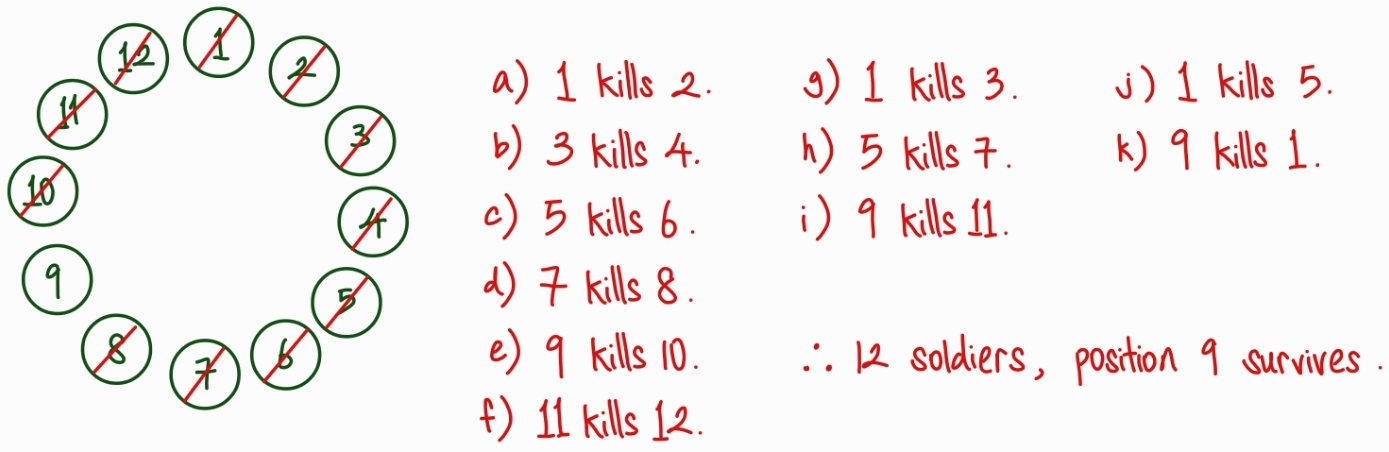 1
2
3
4
5
6
7
8
9
10
11
12
a) 1 kills 2.
b) 3 kills 4.
c) 5 kills 6.
d) 7 kills 8.
e) 9 kills 10.
f) 11 kills 12.
g) 1 kills 3.
h) 5 kills 7.
i) 9 kills 11.
j) 1 kills 5.
k) 9 kills 1.
∴ 12 soldiers, position 9 survives.